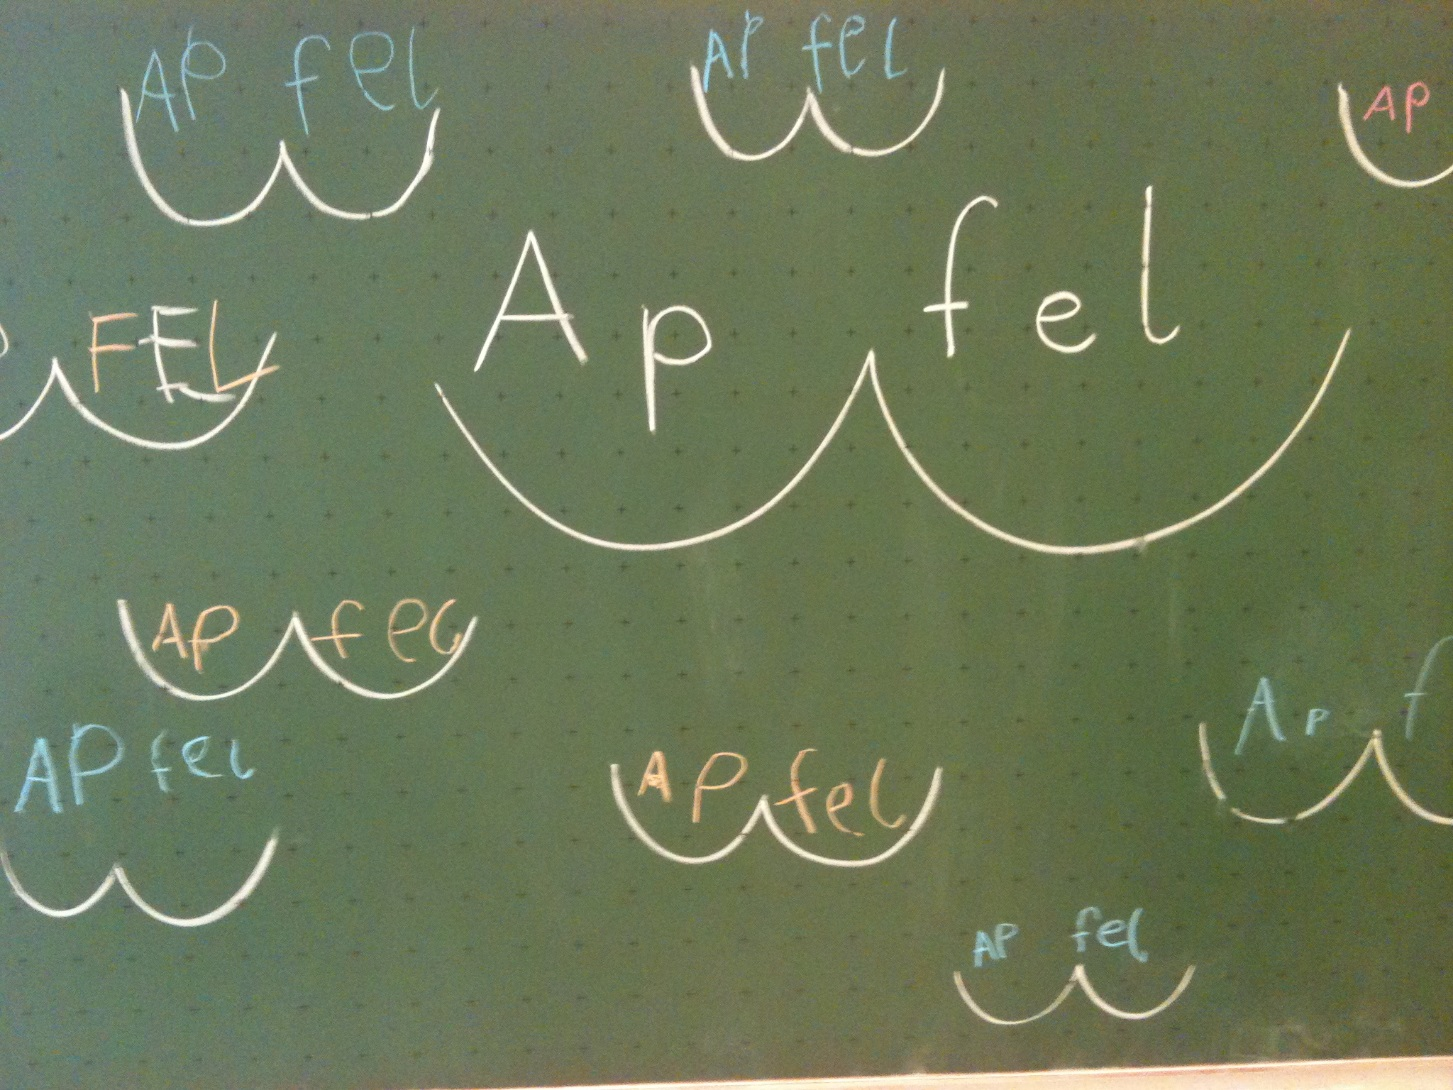 AP fel
AP fel
AP
Ap fel
P FEL
AP fel
AP fel
AP fel
Ap f
AP fel